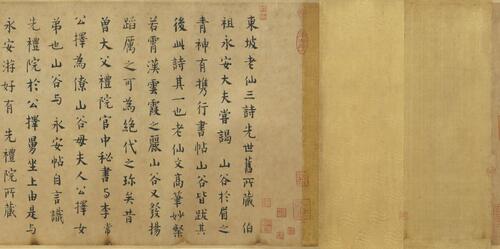 東坡老仙三詩先世舊所藏 伯
祖永安大夫嘗謁 山谷於眉之
青神有携行書帖山谷皆跋其
後此詩其一也老仙文高筆妙粲
若霄漢雲霞之麗山谷又發揚
蹈厲之可為絕代之珍矣昔
曾大父禮院官中秘書与李常
公擇為僚山谷母夫人公擇女
弟也山谷与 永安帖自言識
先禮院於公擇舅坐上由是与
永安游好有 先禮院所藏